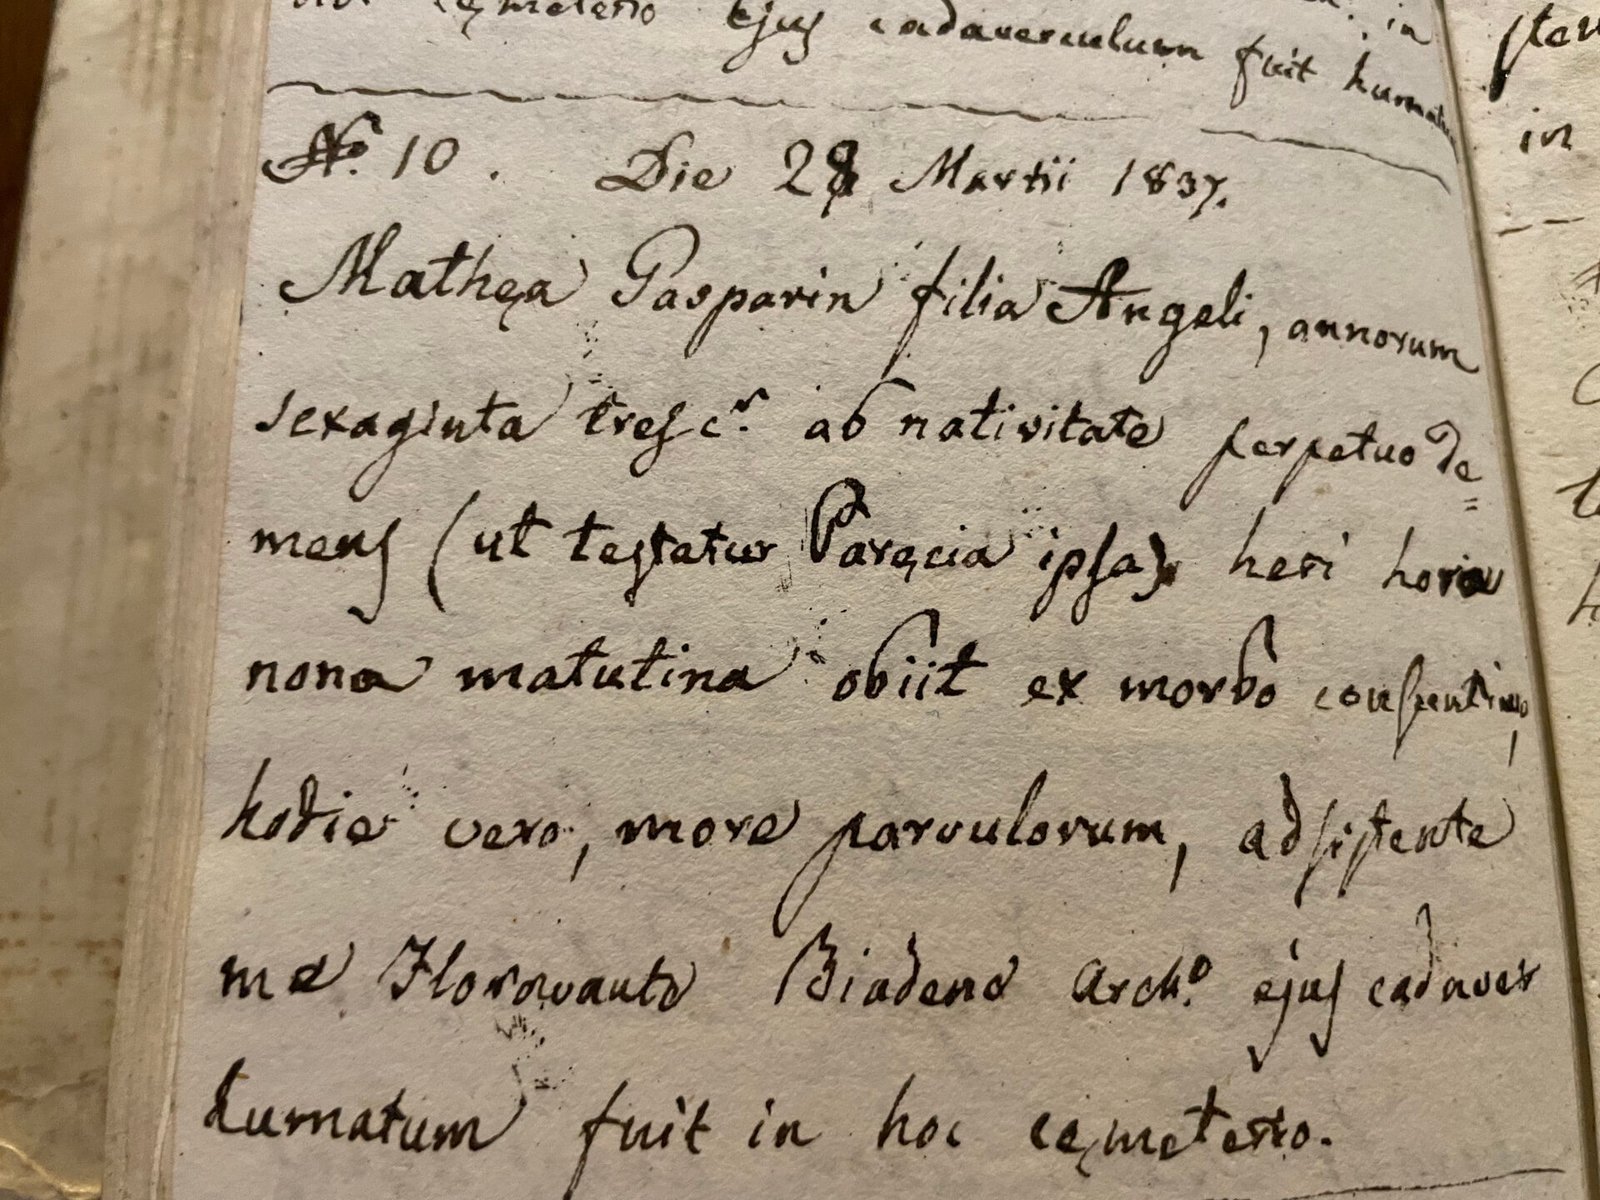 cęmeterio ejus cadaverculum fuit humatu
in
No. 10. Die 28 Martii 1837.
Mathęa Gasparin filia Angeli, annorum
sexaginta tres cr. ab nativitate perpetuo de=
mens (ut testatur Paręcia ipsa) heri hora
nona matutina obiit ex morbo consuntivo,
hodie vero, more parvulorum, adsistente
me Floravante Biadene Archo. ejus cadaver
humatum fuit in hoc cęmeterio.
in